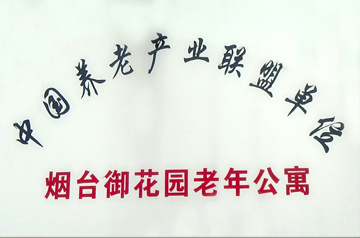 中国养老产业联盟单位
烟台御花园老年公寓